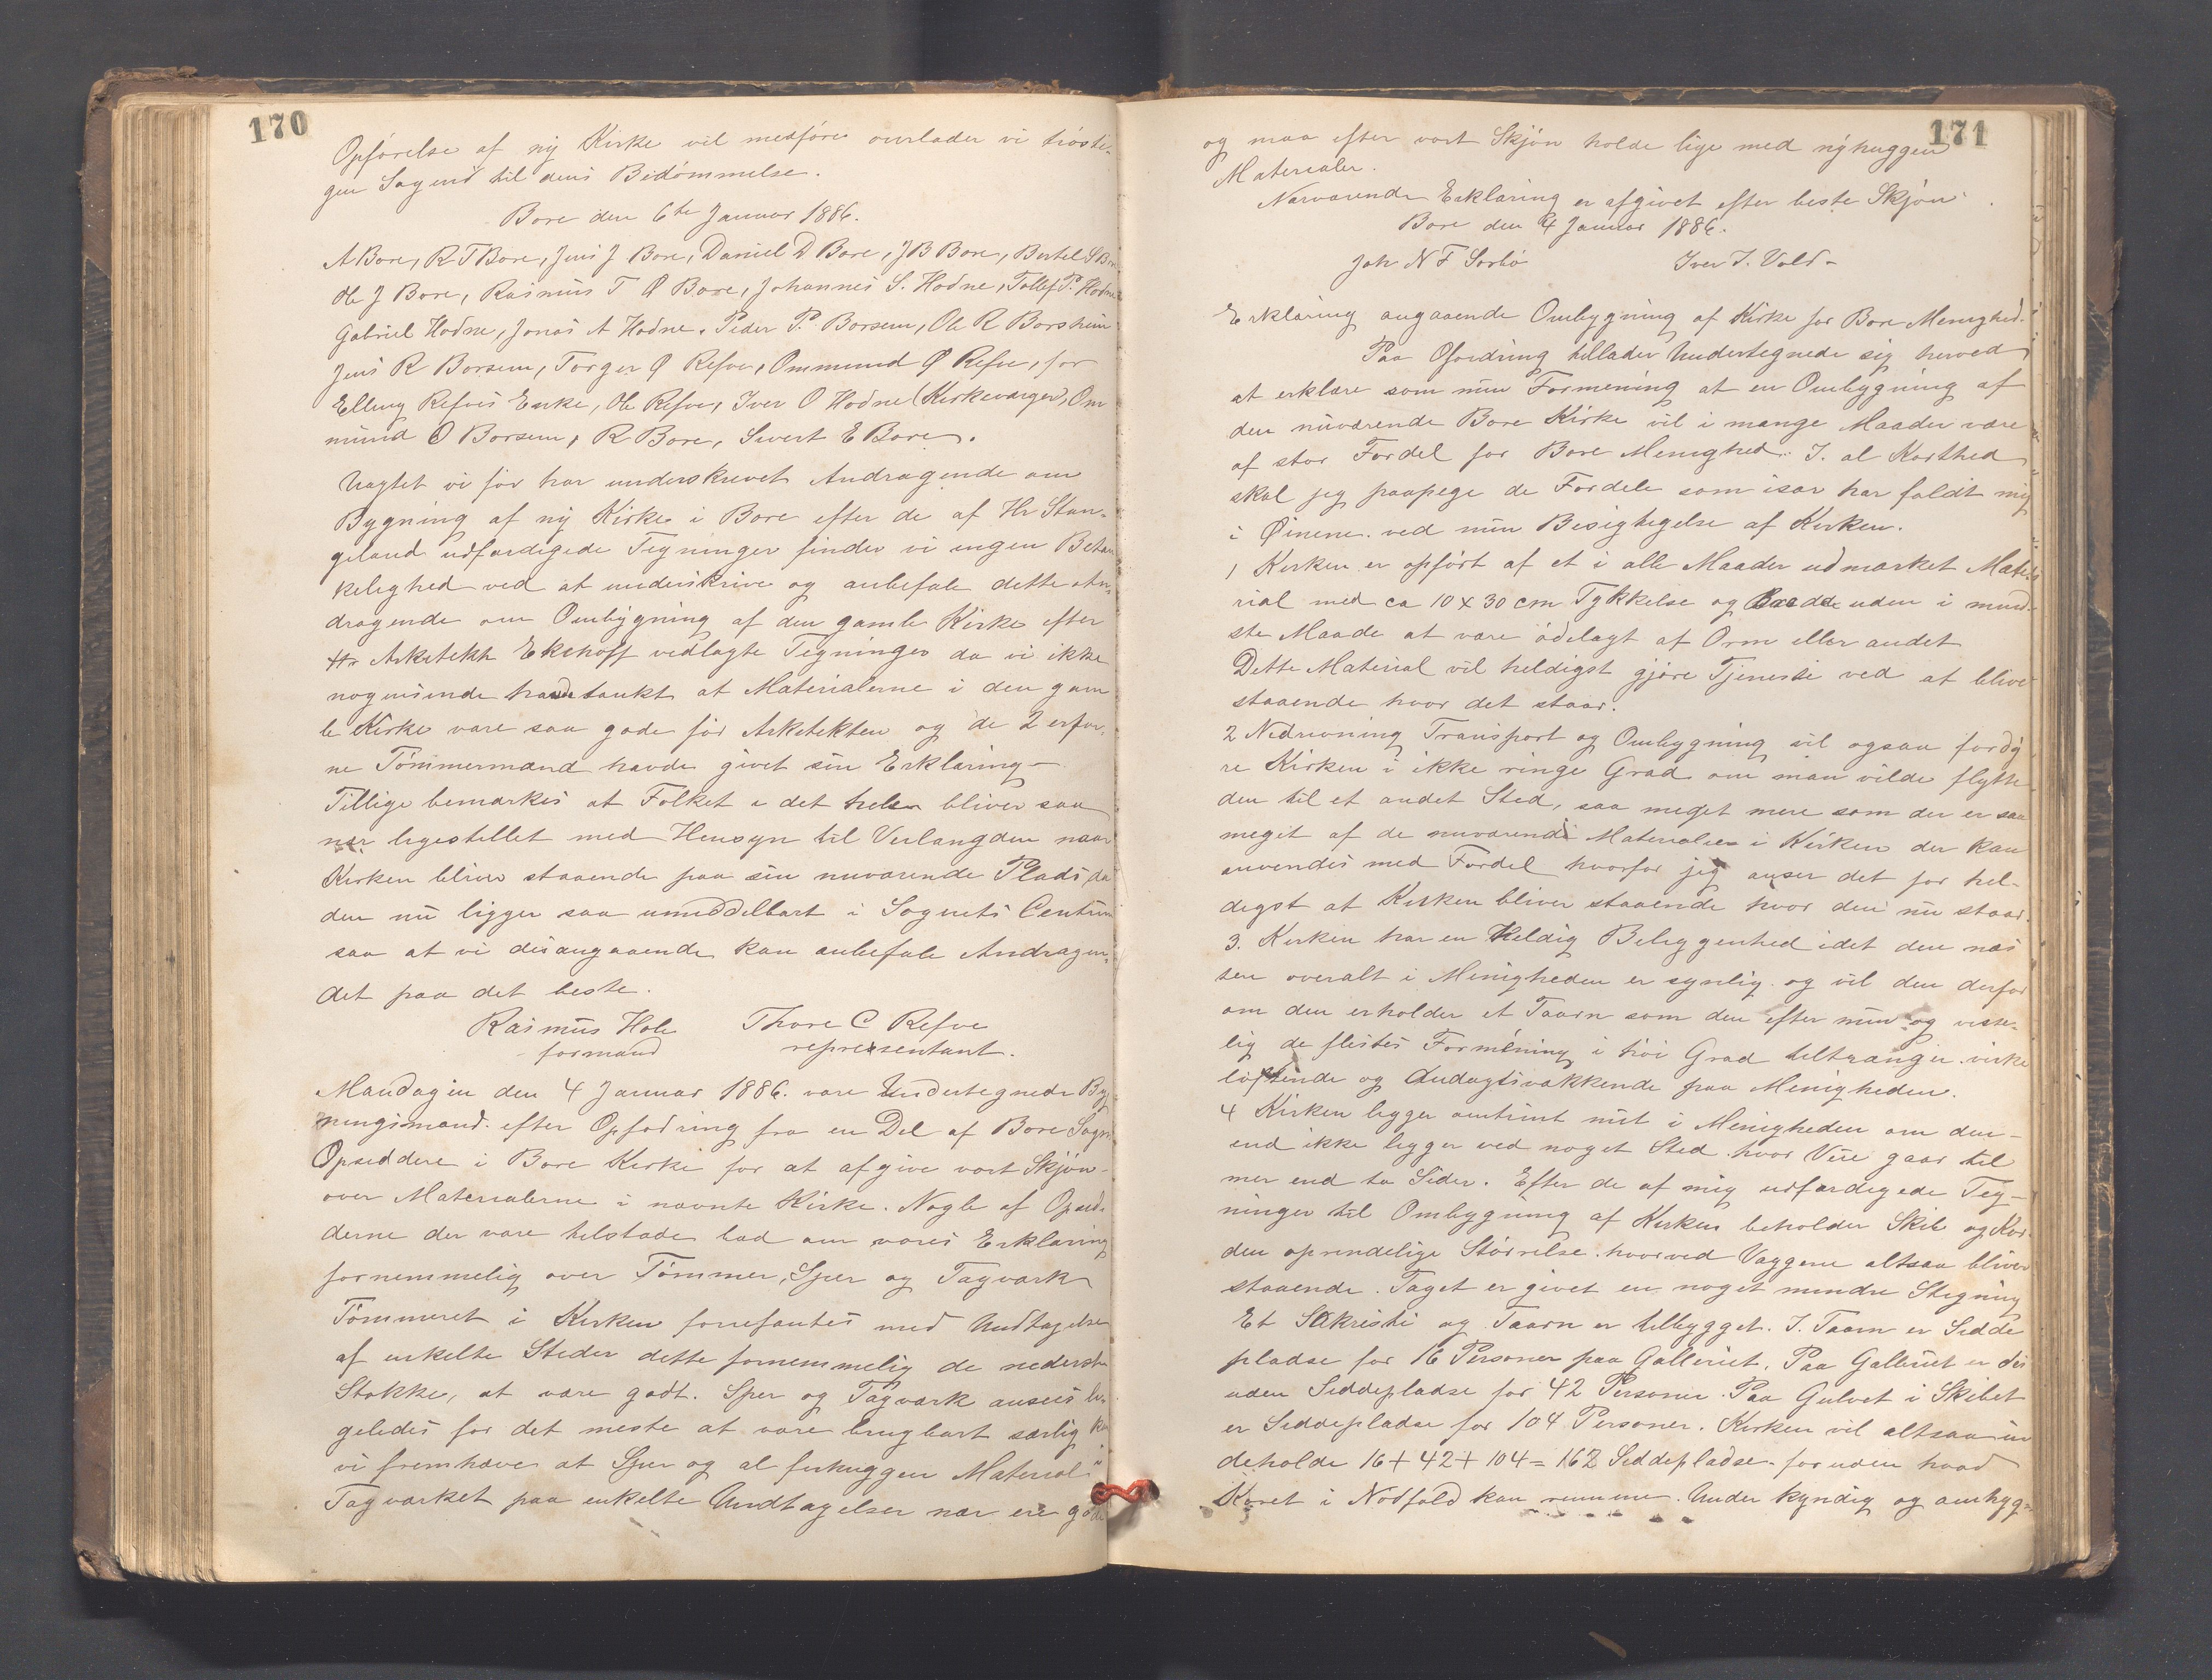 170
Opførelse af ny Kirke vil medføre overlader vi trøsti-
gen Sagens til deres Bedømmelse.
Bore den 6te Januar 1886.
A Bore, R T Bore, Jens J Bore, Daniel D Bore, J B Bore, Bertel S Bore
Ole J Bore, Rasmus T Ø Bore, Johannes S. Hodne, Tollef P. Hodne
Gabriel Hodne, Jonas A Hodne. Peder P. Borsem, Ole R Borsheim
Jens R Borsem, Torger Ø Refve, Ommund Ø Refve, for
Elling Refves Enke, Ole Refve, Iver O Hodne (Kirkeværger), Om
mund O Borsem, R Bore, Sivert E Bore.
Uagtet vi før har underskrevet Andragende om
Bygning af ny Kirke i Bore efter de af Hr Stan-
geland udfærdigede Tegninger finder vi ingen Betæn
kelighed ved at underskrive og anbefale dette An-
dragende om Ombygning af den gamle Kirke efter
Hr Arkitekt Eckhoff vedlagte Tegninger da vi ikke
nogensinde havde tænkt at Materialerne i den gam
le Kirke vare saa gode før Arkitekten og de 2 erfor.
ne Tømmermænd havde givet sin Erklæring—
Tillige bemærkes at Folket i det hele bliver saa
nær ligestillet med Hensyn til Veilængden naar
Kirken bliver staaende paa sin nuværende Plads, da
den nu ligger saa umiddelbart i Sognets Centrum
saa at vi desangaaende kan anbefale Andragen-
det paa det beste.
Rasmus Hole Thore C Refve
formand representant.
Mandagen den 4 Januar 1886. vare Undertegnede Byg-
ningsmænd. efter Opfodring fra en Del af Bore Sogns
Opsiddere i Bore Kirke for at afgive vort Skjøn-
over Materialerne i nævnte Kirke. Nogle af Opsid-
derne der vare tilstæde bad om vores Erklæring
fornemmelig over Tømmer, Sper og Tagværk
Tømmeret i Kirken forrefantes med Undtagelse
af enkelte Steder dette fornemmelig de nederste
Stokke, at være godt. Sper og Tagværk ansees li-
geledes for det meste at være brugbart særlig kan
vi fremhæve at Sper og al firhuggen Material i
Tagværket paa enkelte Undtagelser nær ere gode
171
og maa efter vort Skjøn holde lige med nyhuggen
Materialer.
Nærværende Erklæring er afgivet efter beste Skjøn.
Bore den 4 Januar 1886.
Joh N F Sørbø Iver I. Vold-
Erklæring angaaende Ombygning af Kirke for Bore Menighed.
Paa Ofordring tillader Undertegnede sig herved
at erklære som min Formening at en Ombygning af
den nuværende Bore Kirke vil i mange Maader være
af stor Fordel for Bore Menighed. I. al Korthed
skal jeg paapege de Fordele som især har faldt mig
i Øinene. ved min Besigtigelse af Kirken.
1 Kirken er opført af et i alle Maader udmærket Mate-
rial med ca 10 x 30 cm Tykkelse og Bredde uden i mind-
ste Maade at være ødelagt af Orm eller andet
Dette Material vil heldigst gjøre Tjeneste ved at blive
staaende hvor det staar.
2 Nedrivning Transport og Ombygning vil ogsaa fordy
re Kirken i ikke ringe Grad om man vilde flytte
den til et andet Sted, saa meget mere som der er saa
meget af de nuværende Materialier i Kirken der kan
anvendes med Fordel hvorfor jeg anser det for hel-
digst at Kirken bliver staaende hvor den nu staar.
3. Kirken har en Heldig Beliggenhed idet den næs
ten overalt i Menigheden er synlig. og vil den derfor
om den erholder et Taarn som den efter min og visse-
lig de flestes Formening i høi Grad tiltrænger. virke
løftende og Andagtsvækkende paa Menigheden.
4 Kirken ligger omtrent mit i Menigheden om den-
end ikke ligger ved noget Sted hvor Veie gaar til
mer end to Sider. Efter de af mig udfærdigede Teg-
ninger til Ombygning af Kirken beholder Skib og Kor.
den oprendelige Størrelse. hvorved Væggene altsaa bliver
staaende. Taget er givet en noget mindre Stegning
Et Sakristi og Taarn er tilbygget. I. Taarn er Sidde
pladse for 16 Personer paa Galleriet. Paa Galleriet er des
uden Siddepladse for 42 Personer. Paa Gulvet i Skibet
er Siddepladse for 104 Personer. Kirken vil altsaa in
deholde 16 + 42 + 104 = 162 Siddepladse. foruden hvad
Koret i Nødfald kan rumme. Under kyndig og omhyg-